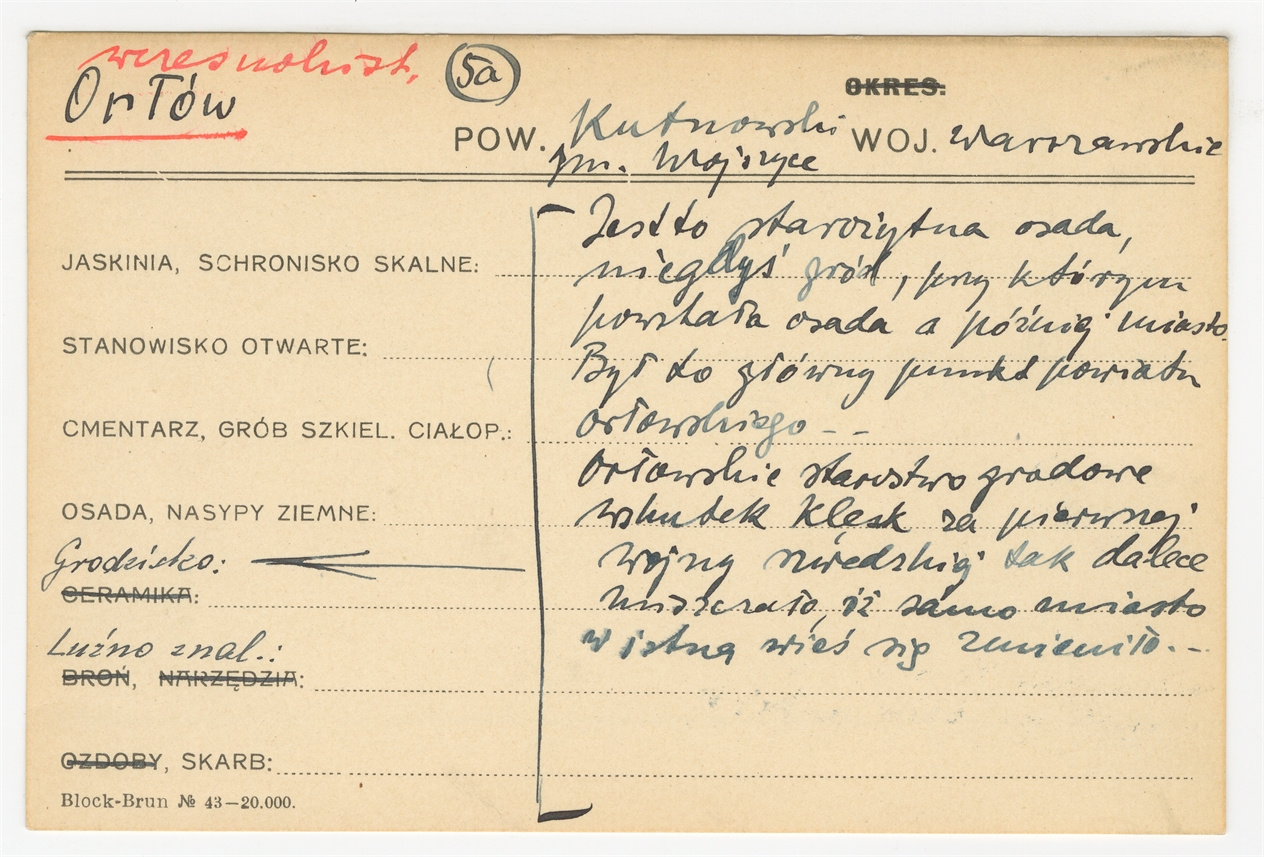 wczesnohist.
Orłów
5a
OKRES:
POW. Kutnowski WOJ. Warszawskie
gm. Wojszyce
Jest to starożytna osada,
JASKINIA, SCHRONISKO SKALNE: niegdyś gród, przy którym
powstała osada a później miasto.
STANOWISKO OTWARTE:
Był to główny punkt powiatu
CMENTARZ, GRÓB SZKIEL. CIAŁOP.: orłowskiego - -
Orłowskie starostwo grodowe
OSADA, NASYPY ZIEMNE: wskutek klęsk za pierwszej
Grodzisko: wojny szwedzkiej tak dalece
CERAMIKA: zniszczało, iż samo miasto
Luźno znal.: w istną wieś się zmieniło. -
BROŃ, NARZĘDZIA:
OZDOBY, SKARB:
Block-Brun № 43—20.000.